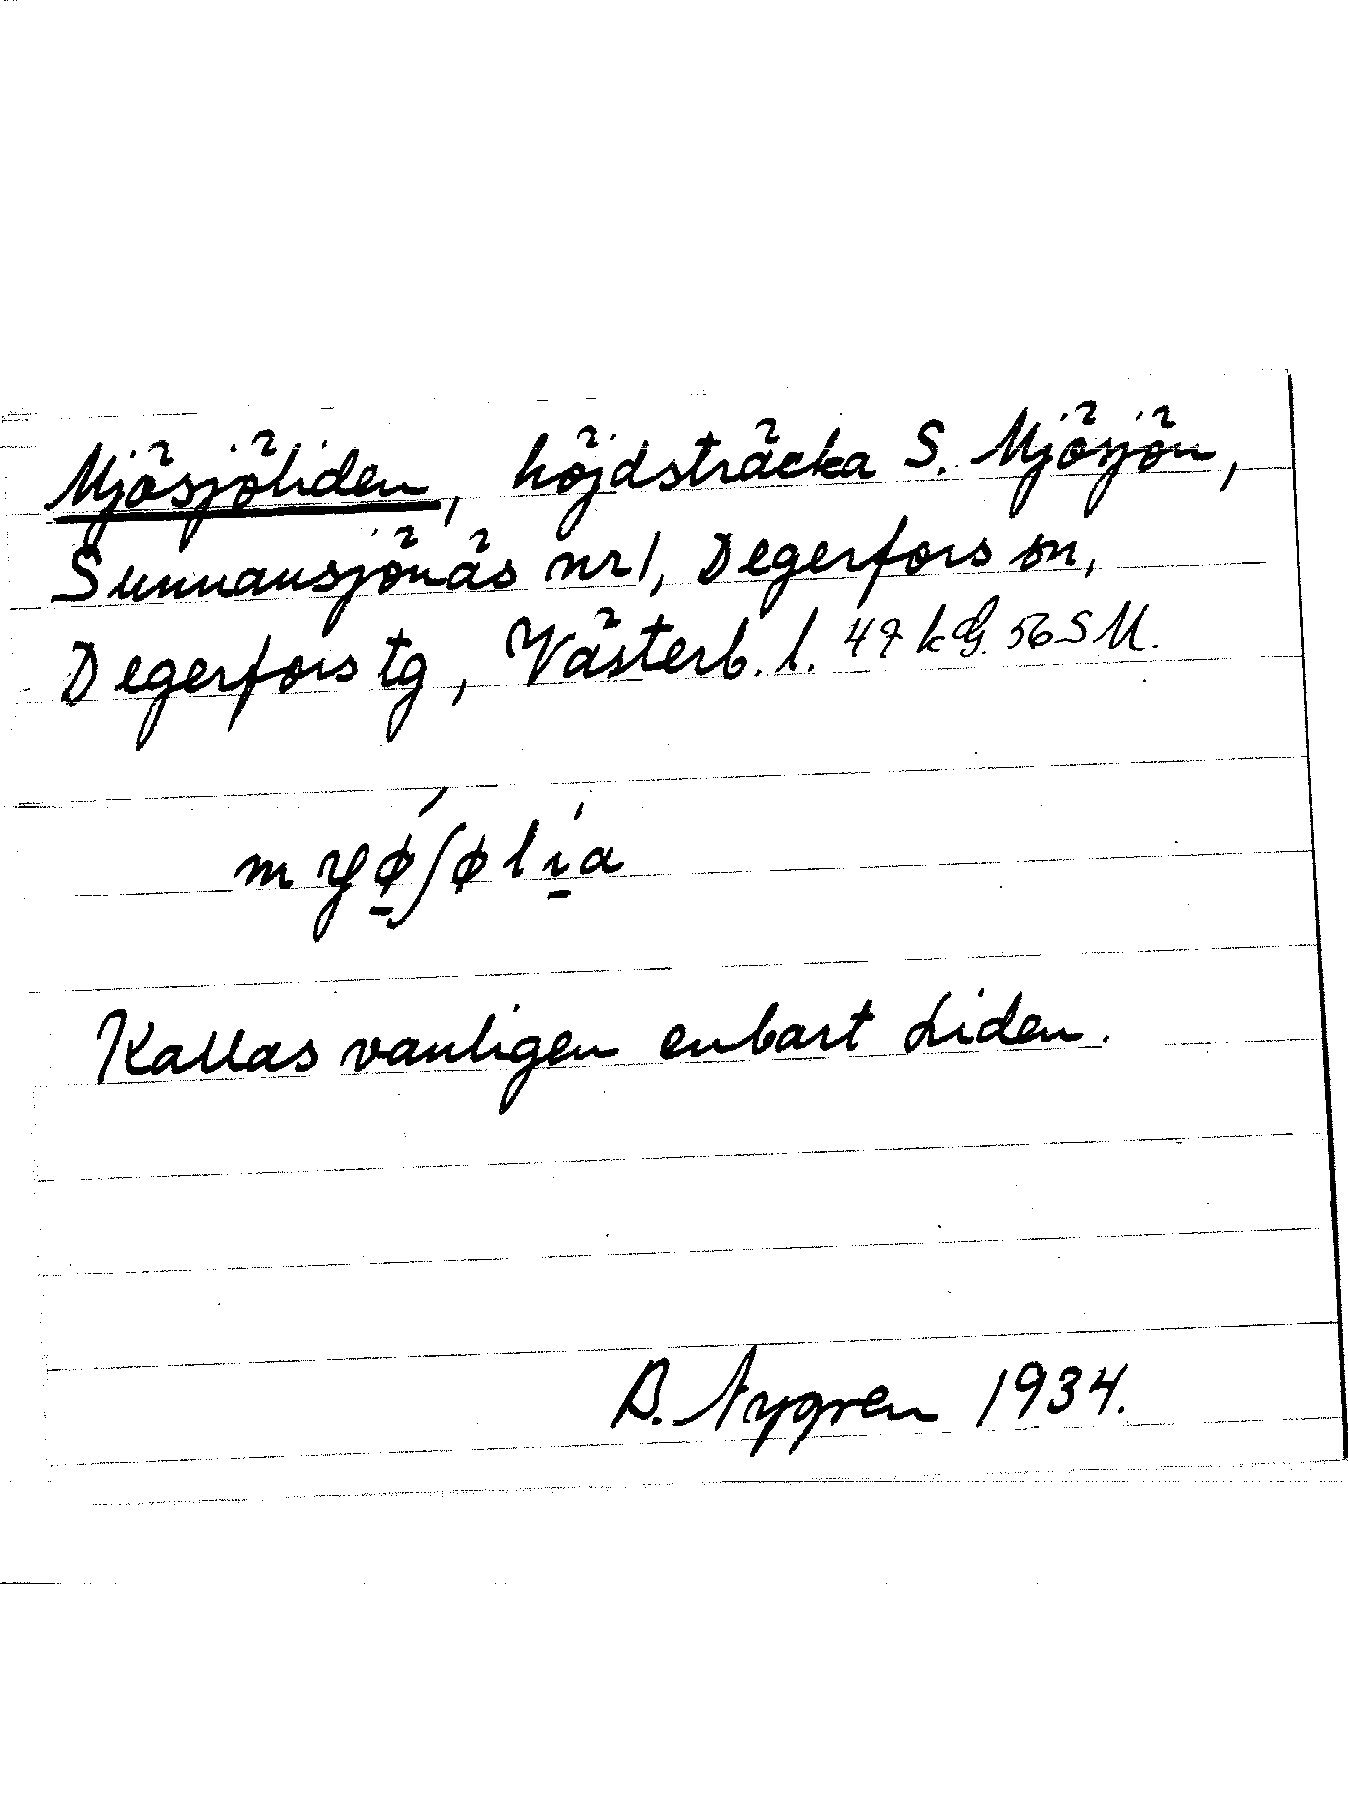 Mjösjöliden, höjdsträcka S. Mjösjön,
Sunnansjönäs nr 1, Degerfors sn,
Degerfors tg, Västerb. l. 47 kG. 56 S M.
Kallas vanligen enbart Liden.
B. Nygren 1934.